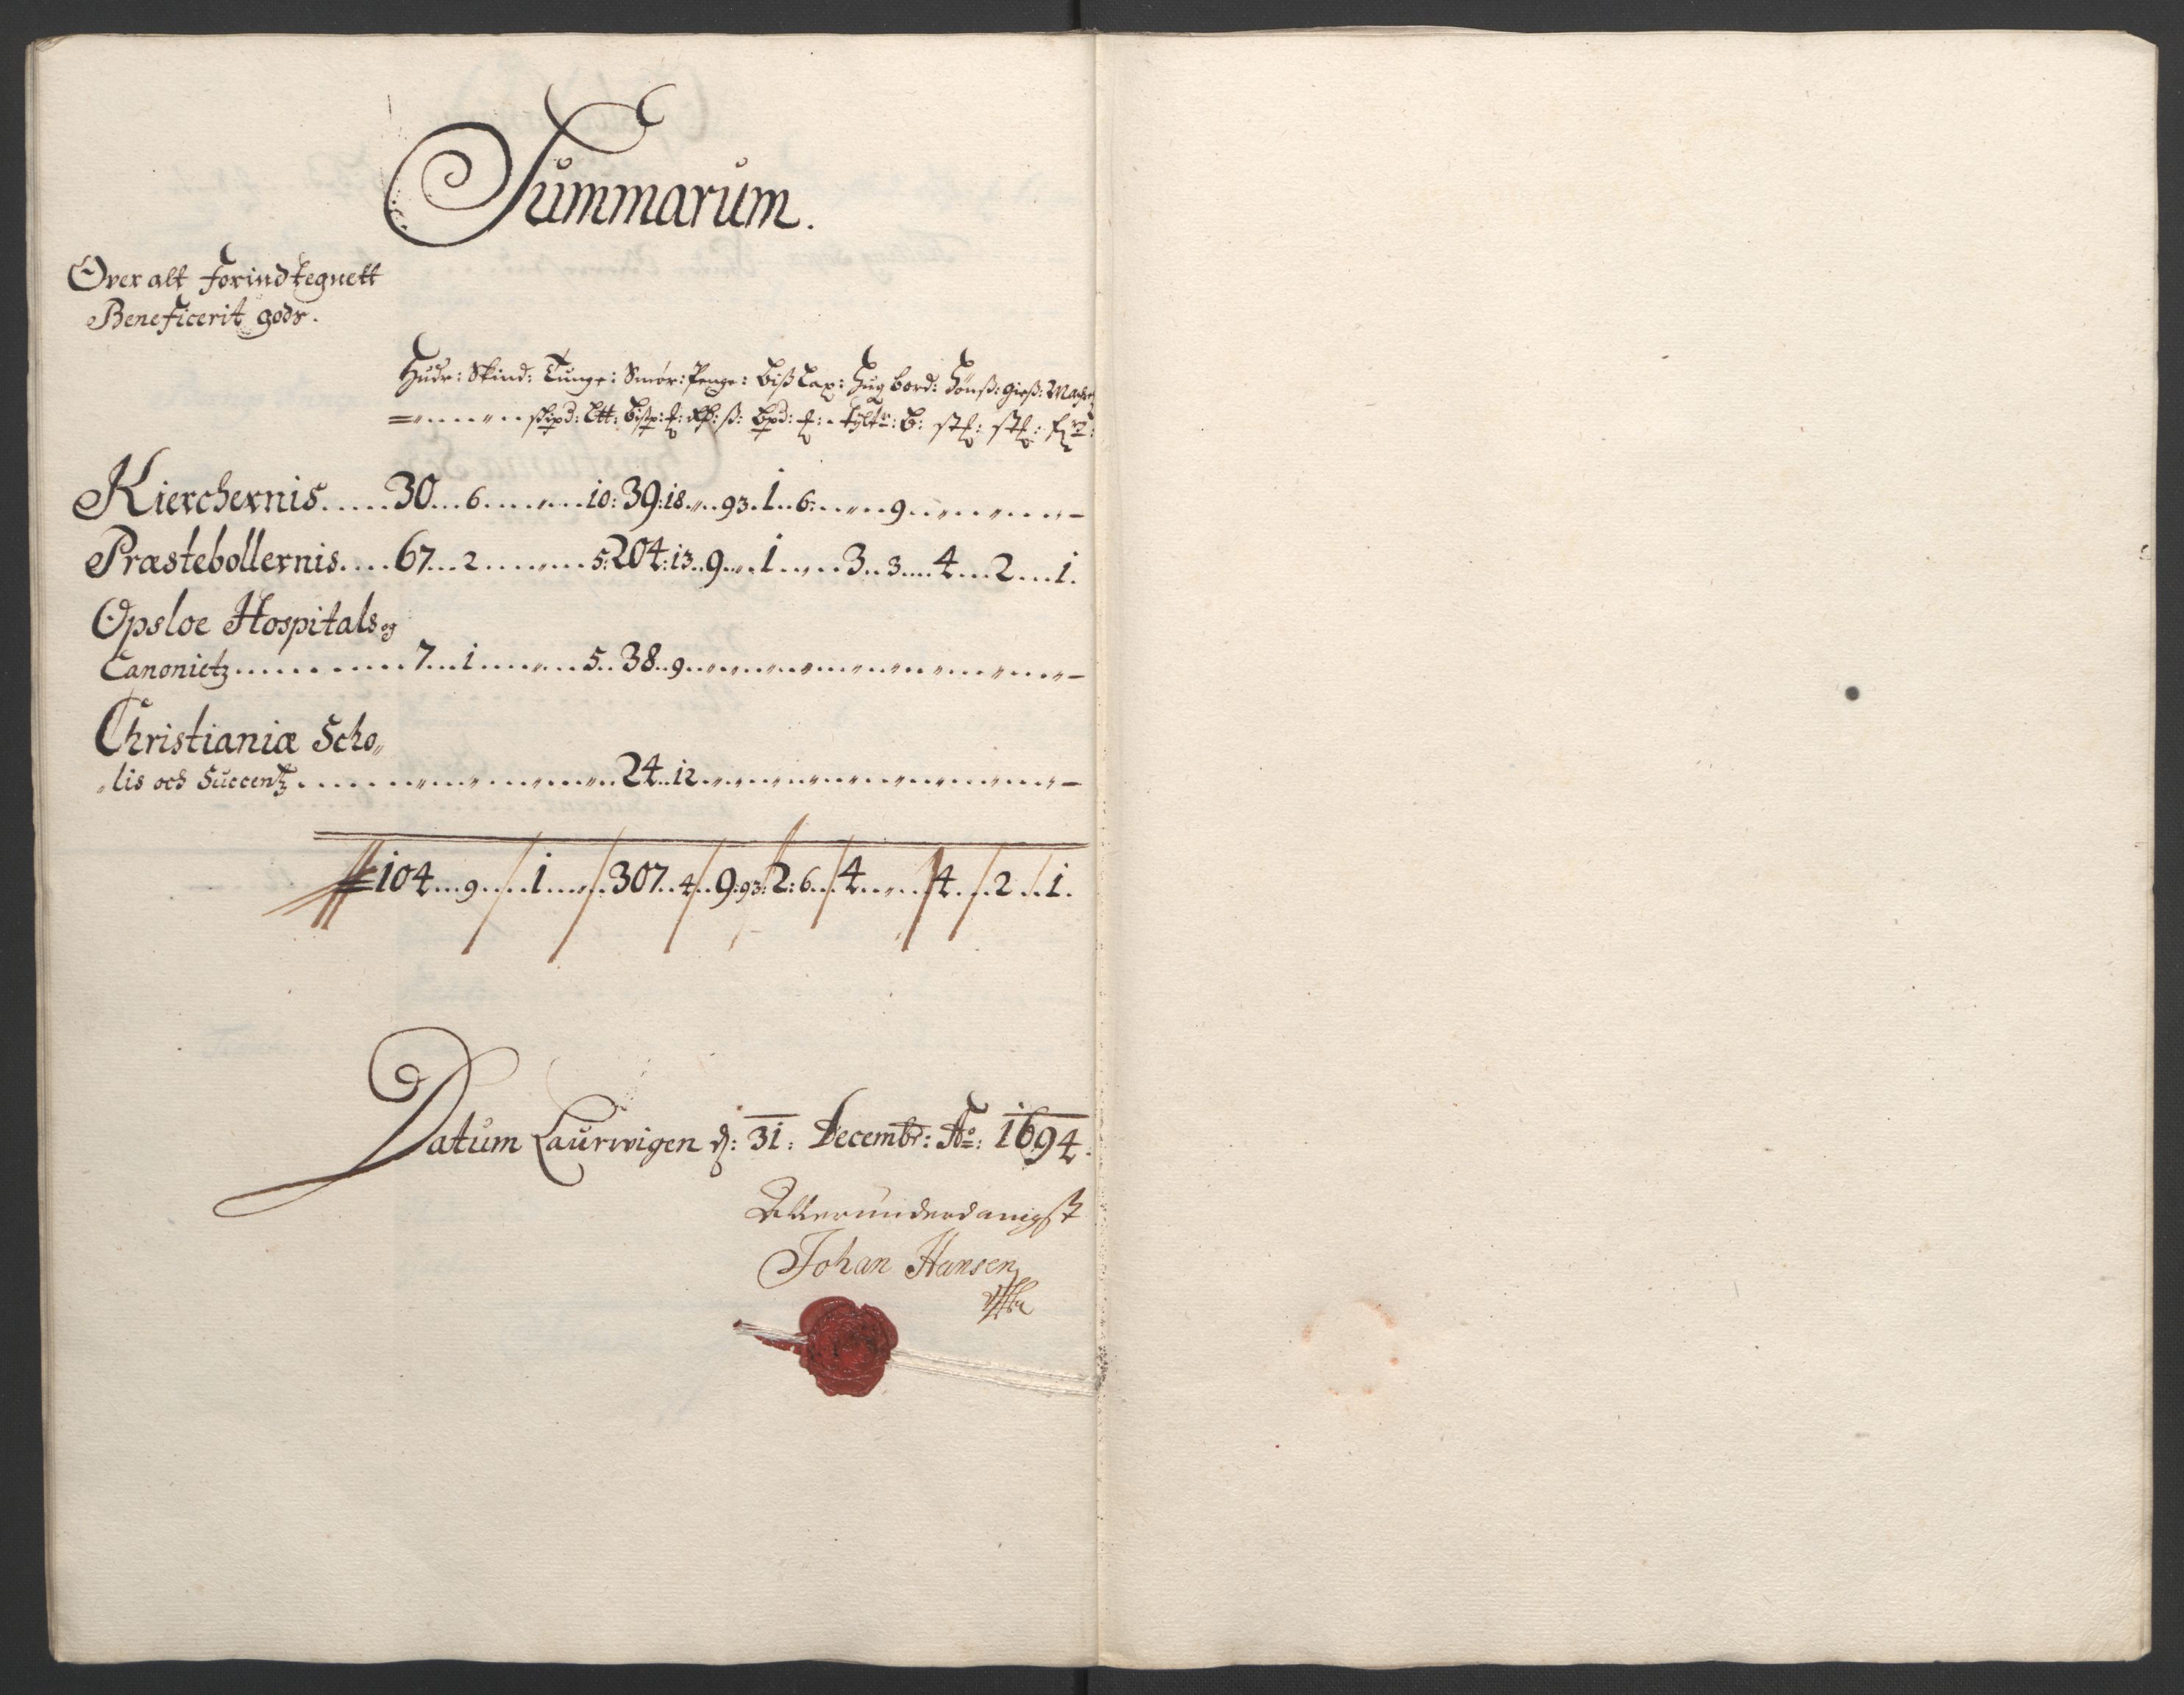 Summarum.
Over alt forindtegnett
Beneficerit gods.
Huder: Skind: Tunge: Smör: Penge: bisß Lax: Hug bord: Hönß: gieß:
Kierchernis.....30...6.........10:39:18....93.1..6.......9..........–
Præstebollernis....67...2..........5:204:13..9....1......3..3....4...2...1.
Opsloe Hospitals og
Canonietz..........7...1.......5..38..9..........–
Christianiæ Scho„
„lis och Succentz..........24..12..........–
104...9.....1......307..4..9:93:2:6...4......4...2...1.
Datum Laurwigen d: 31: Decembr: Ao: 1694.
Allerunderdanigst
Johan Hansen